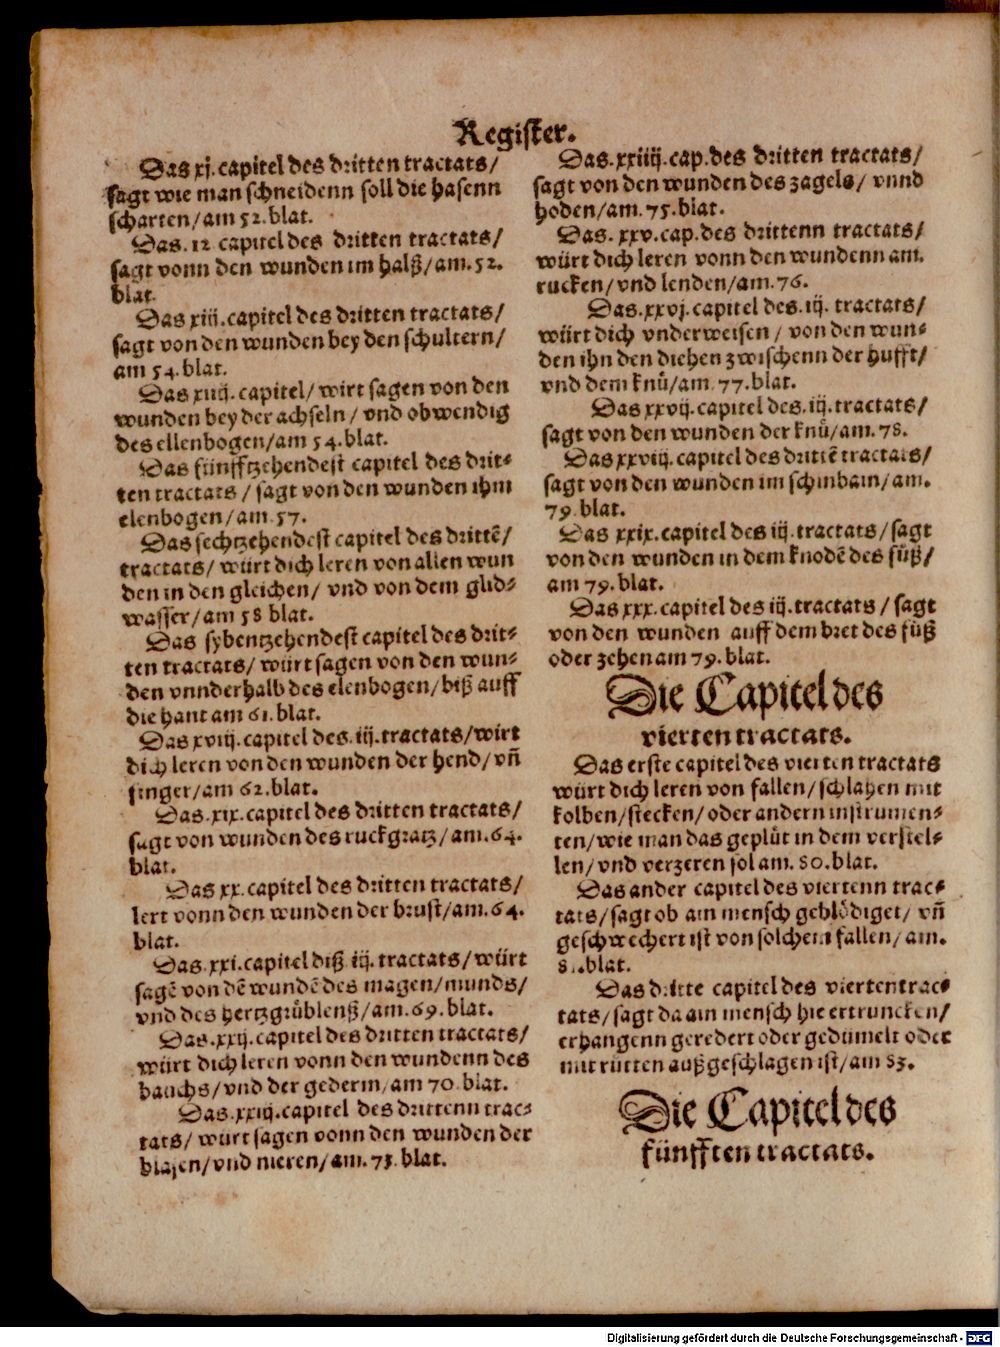 Register.
Das xj. capitel des dritten tractats/
sagt wie man schneidenn soll die hasenn
scharten/am 52. blat.
Das. 12 capitel des dritten tractats/
sagt vonn den wunden im halß/am. 52.
blat.
Das xiij. capitel des dritten tractats/
sagt von den wunden bey den schultern/
am 54. blat.
Das xiiij. capitel/wirt sagen von den
wunden bey der achseln/ vnd obwendig
des ellenbogen/am 54. blat.
Das fünfftzehendest capitel des drit⸗
ten tractats/ sagt von den wunden ihm
elenbogen/am 57.
Das sechtzehendest capitel des drittē/
tractats/ würt dich leren von allen wun
den in den gleichen/ vnd von dem glid⸗
wasser/am 58 blat.
Das sybentzehendest capitel des drit⸗
ten tractats/ würt sagen von den wun⸗
den vnnderhalb des elenbogen/biß auff
die hant am 61. blat.
Das xviij. capitel des. iij. tractats/wirt
dich leren von den wunden der hend/ vñ
finger/am 62. blat.
Das. xix. capitel des dritten tractats/
sagt von wunden des ruckgratz/am. 64.
blat.
Das xx. capitel des dritten tractats/
lert vonn den wunden der brust/am. 64.
blat.
Das. xxi. capitel diß iij. tractats/würt
sagē von dē wundē des magen/munds/
vnd des hertzgrüblenß/am. 69. blat.
Das. xxij. capitel des dritten tractats/
würt dich leren vonn den wundenn des
bauchs/vnd der gederm/am 70. blat.
Das. xxiij. capitel des drittenn trac⸗
tats/ würt sagen vonn den wunden der
blasen/vnd nieren/am. 73. blat.
Das. xxiiij. cap. des dritten tractats/
sagt von den wunden des zagels/ vnnd
hoden/am. 75. blat.
Das. xxv. cap. des drittenn tractats/
würt dich leren vonn den wundenn am.
rucken/vnd lenden/am. 76.
Das. xxvj. capitel des. iij. tractats/
würt dich vnderweisen/ von den wun⸗
den ihn den diehen zwischenn der hufft/
vnd dem knů/am. 77. blat.
Das xxvij. capitel des. iij. tractats/
sagt von den wunden der knů/am. 78.
Das xxviij. capitel des drittē tractats/
sagt von den wunden im schinbain/am.
79. blat.
Das xxix. capitel des iij. tractats/ sagt
von den wunden in dem knodē des fůß/
am 79. blat.
Das xxx. capitel des iij. tractats/ sagt
von den wunden auff dem bret des fůß
oder zehen am 79. blat.
Die Capitel des
vierten tractats.
Das erste capitel des vierten tractats
würt dich leren von fallen/schlahen mit
kolben/stecken/oder andern instrumen⸗
ten/wie man das geplüt in dem verstel⸗
len/vnd verzeren sol am. 80. blat.
Das ander capitel des viertenn trac⸗
tats/sagt ob ain mensch geblödiget/ vñ
geschwechert ist von solchem fallen/am.
blat.
Das dritte capitel des vierten trac⸗
tats/sagt da ain mensch hie ertruncken/
erhangenn geredert oder gedümelt oder
mit rütten außgeschlagen ist/am 83.
Die Capitel des
fünfften tractats.
Digitalisierung gefördert durch die Deutsche Forschungsgemeinschaft - DFG